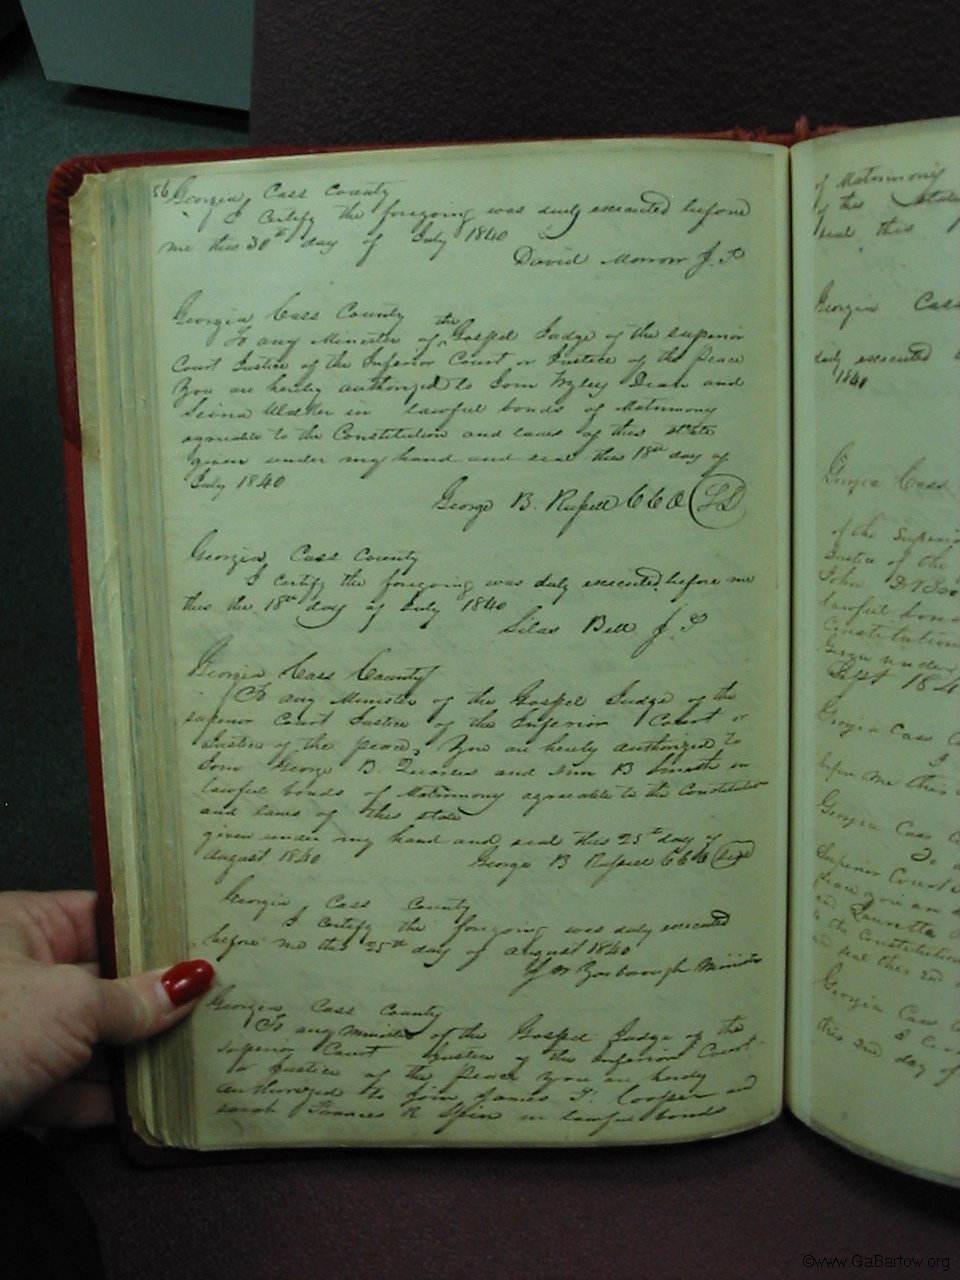 56 Georgia, Cass County
I Certify the foregoing was duly executed before
me this 30th day of July 1840
David Morrow J. P
Georgia Cass County
To any Minister of the Gospel Judge of the superior
Court Justice of the Inferior Court or Justice of the Peace
You are hereby authorized to Join Wyley Dean and
Walker in lawful bonds of Matrimony
agreeable to the Constitution and laws of this state
given under my hand and seal this 18th day of
July 1840
George B. Russell C C O L S
Georgia, Cass County
I certify the foregoing was duly executed before me
this the 18th day of July 1840
Silas Bell J. P
Georgia Cass County
To any Minister of the Gospel Judge of the
superior Court Justice of the Inferior Court or
Justice of the peace, You are hereby authorized to
Join George B. Quarles and Ann B in
lawful bonds of Matrimony agreeable to the Constitution
and laws of this state
given under my hand and seal this 25th day of
August 1840 George B Russell C C O
Georgia, Cass County
I Certify the foregoing was duly executed
before me this 25th day of august 1840
Yarborough Minister
Georgia Cass County
To any Minister of the Gospel Judge of the
superior Court Justice of the inferior Court
or Justice of the Peace you are hereby
authorized to Join James Cooper and
sarah Frances R in lawful bonds
of Matrimony
of this state
seal this
Georgia Cass
duly executed
1840
Georgia Cass
of the Superior
Justice of the
John
lawful bonds
Constitution
Given under
Sept 184
Georgia Cass
I
before me this
Georgia Cass
To
Superior Court
peace you are
and
to the Constitution
and seal this 2nd
Georgia Cass
I
this 2nd day of
©www.GaBartow.org